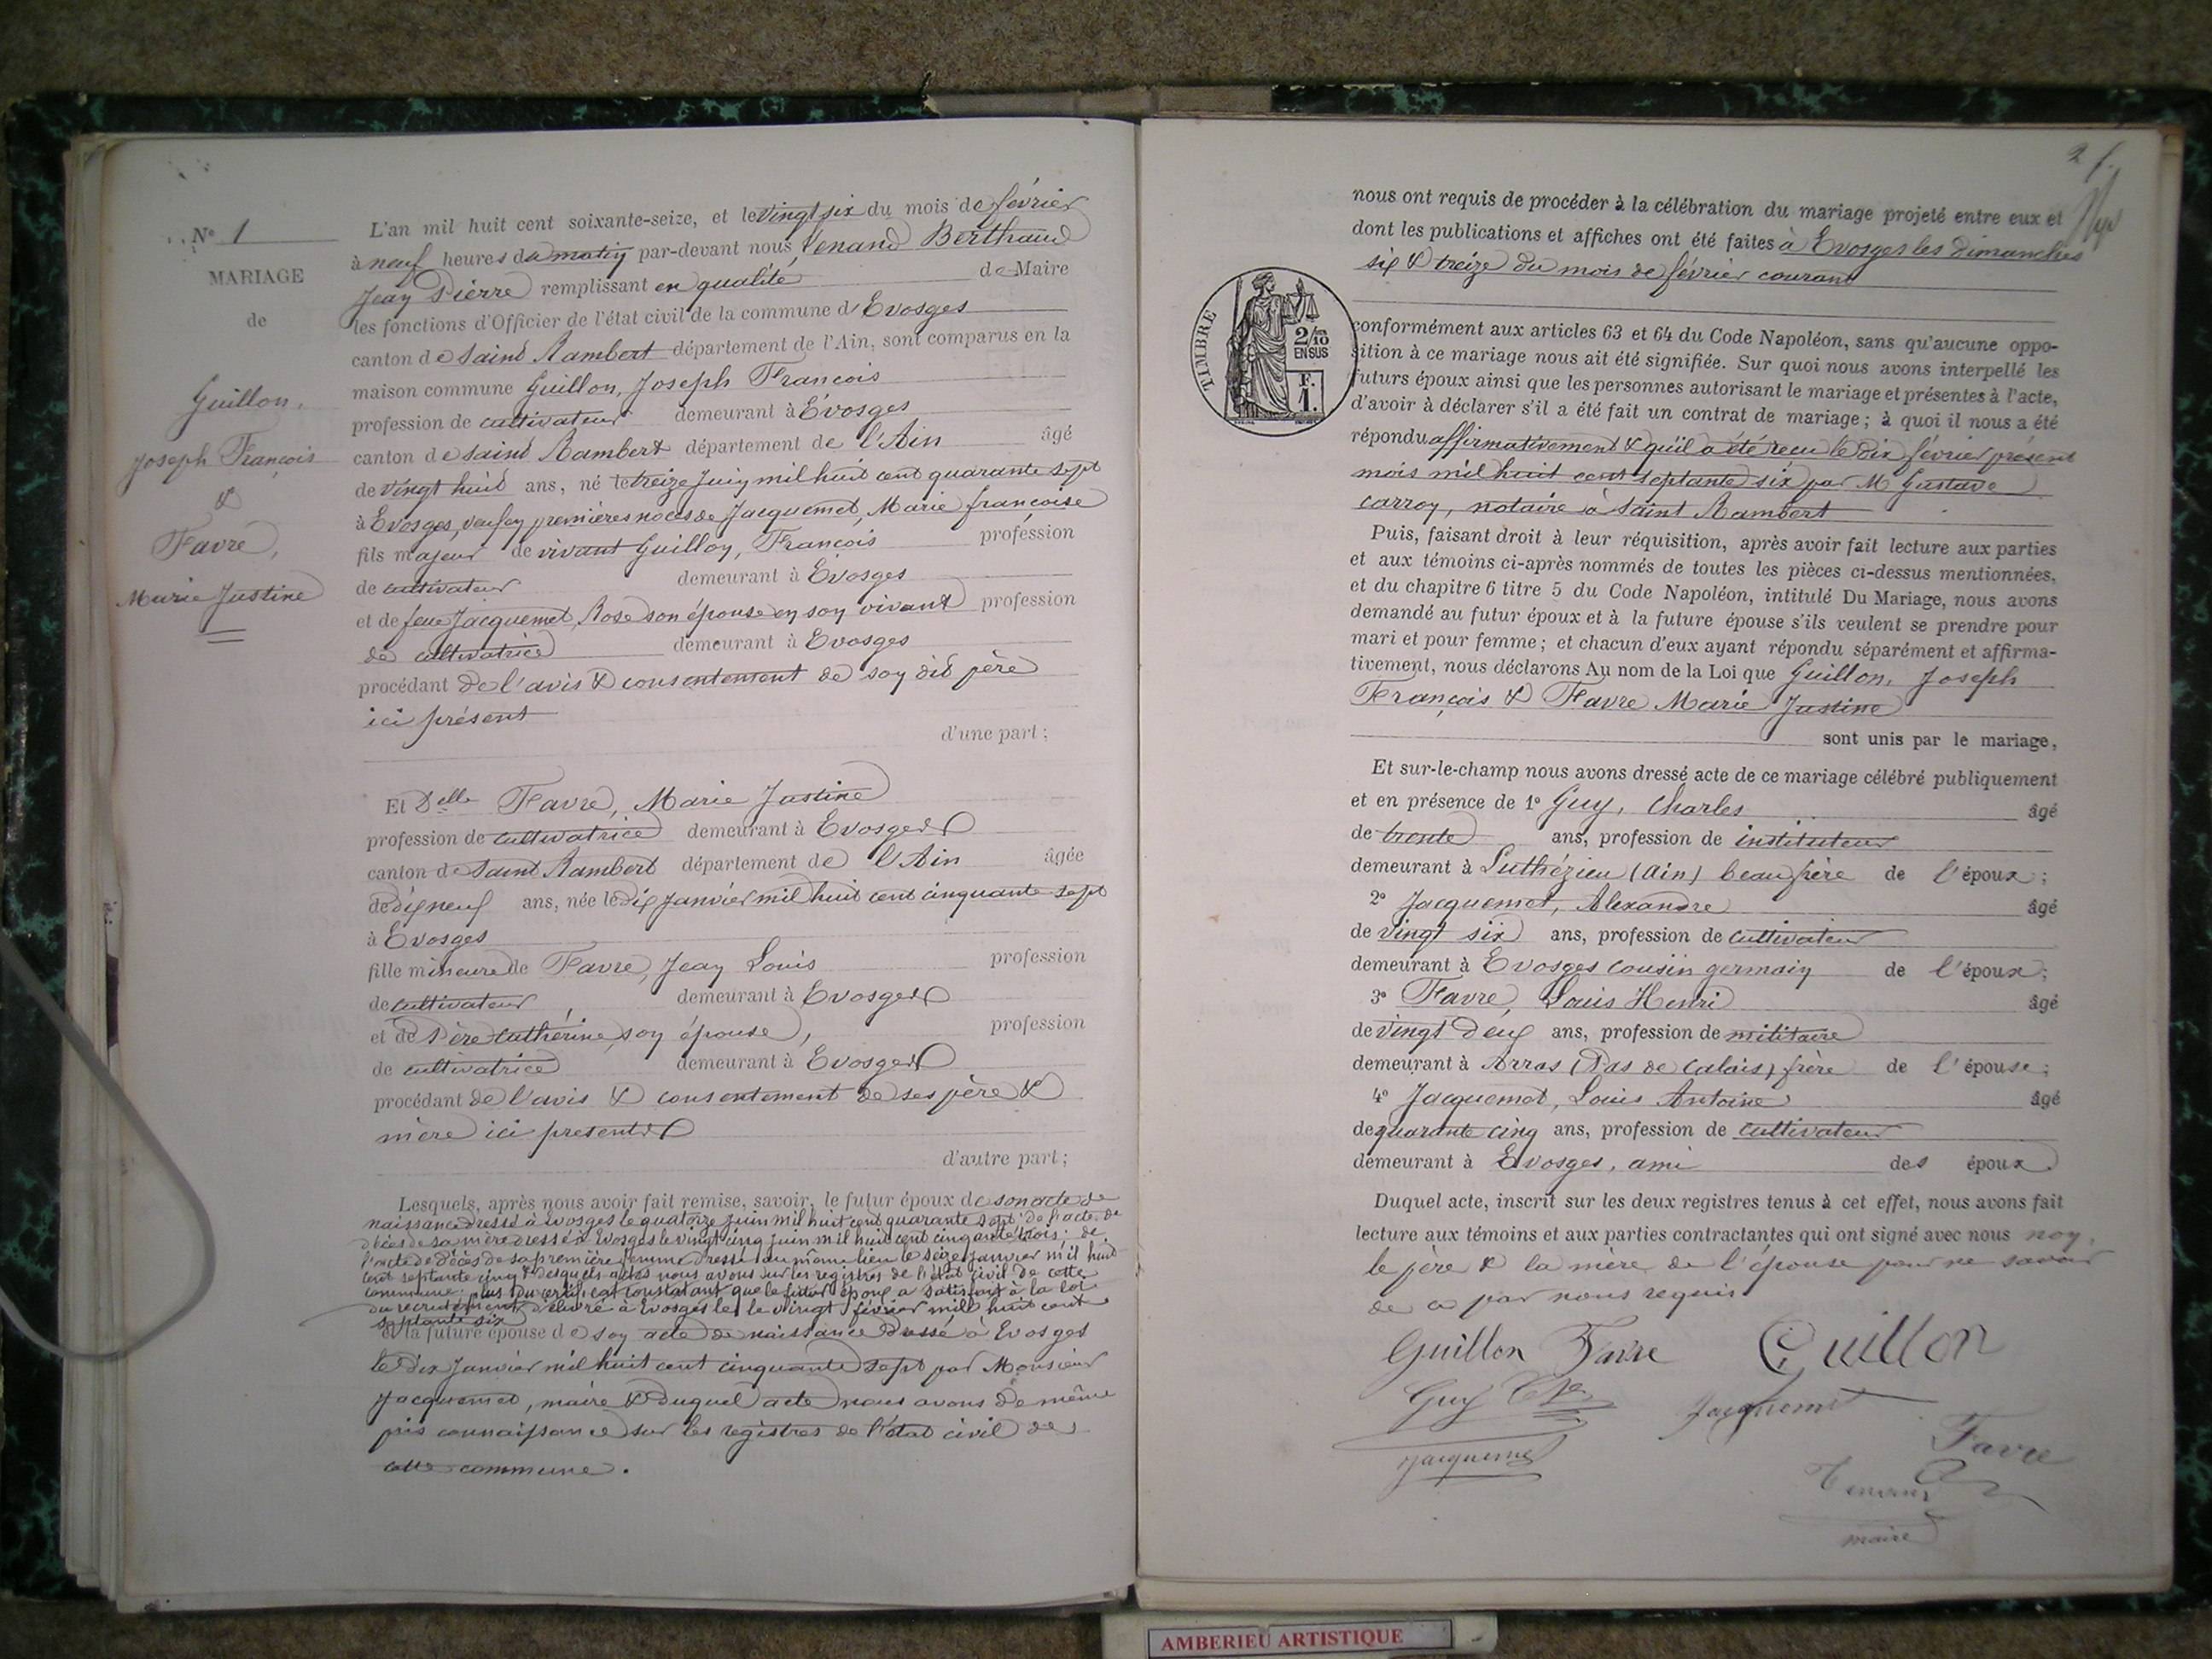 N° 1
MARIAGE
de
Guillon,
Joseph François
&
Favre,
Marie Justine
L'an mil huit cent soixante-seize, et le vingt six du mois de février
à neuf heures du matin par-devant nous, Berthaud
Jean Pierre remplissant en qualité de Maire
les fonctions d'Officier de l'état civil de la commune d'Evosges
canton de Saint Rambert département de l'Ain, sont comparus en la
maison commune Guillon, Joseph François
profession de cultivateur demeurant à Evosges
canton de Saint Rambert département de l'Ain âgé
de vingt huit ans, né le treize Juin mil huit cent quarante sept
à Evosges, veuf en premières noces de Jacquemet, Marie françoise
fils majeur de vivant Guillon, François profession
de cultivateur demeurant à Evosges
et de feue Jacquemet, Rose son épouse en son vivant profession
de cultivatrice demeurant à Evosges
procédant de l'avis & consentement de son dit père
ici présent
d'une part ;
Et Delle Favre, Marie Justine
profession de cultivatrice demeurant à Evosges
canton de Saint Rambert département de l'Ain âgée
de dix neuf ans, née le dix Janvier mil huit cent cinquante sept
à Evosges
fille mineure de Favre, Jean Louis profession
de cultivateur demeurant à Evosges
et de Père Cathérine, son épouse, profession
de cultivatrice demeurant à Evosges
procédant de l'avis & consentement de ses père &
mère ici présents
d'autre part ;
Lesquels, après nous avoir fait remise, savoir, le futur époux de son acte de
naissance dressé à Evosges le quatorze juin mil huit cent quarante sept ; de l'acte de
décès de sa mère dressé à Evosges le vingt cinq juin mil huit cent cinquante trois ; de
l'acte de décès de sa première femme dressé au même lieu le seize janvier mil huit
cent septante cinq & desquels actes nous avons sur les registres de l'état civil de cette
commune. plus du certificat constatant que le futur époux a satisfait à la loi
du recrutement, délivré à Evosges le vingt février mil huit cent
septante six
& la future épouse de son acte de naissance dressé à Evosges
le dix Janvier mil huit cent cinquante sept par Monsieur
Jacquemet, maire & duquel acte nous avons de même
pris connaissance sur les registres de l'état civil de
cette commune.
nous ont requis de procéder à la célébration du mariage projeté entre eux et
dont les publications et affiches ont été faites à Evosges les Dimanches
six & treize du mois de février courant
TIMBRE
2/10
EN SUS
F.
1.
conformément aux articles 63 et 64 du Code Napoléon, sans qu'aucune oppo-
sition à ce mariage nous ait été signifiée. Sur quoi nous avons interpellé les
futurs époux ainsi que les personnes autorisant le mariage et présentes à l'acte,
d'avoir à déclarer s'il a été fait un contrat de mariage ; à quoi il nous a été
répondu affirmativement & qu'il a été reçu le dix février présent
mois mil huit cent septante six par M Gustave
Carroy, notaire à Saint Rambert
Puis, faisant droit à leur réquisition, après avoir fait lecture aux parties
et aux témoins ci-après nommés de toutes les pièces ci-dessus mentionnées,
et du chapitre 6 titre 5 du Code Napoléon, intitulé Du Mariage, nous avons
demandé au futur époux et à la future épouse s'ils veulent se prendre pour
mari et pour femme ; et chacun d'eux ayant répondu séparément et affirma-
tivement, nous déclarons Au nom de la Loi que Guillon, Joseph
François & Favre Marie Justine
sont unis par le mariage,
Et sur-le-champ nous avons dressé acte de ce mariage célébré publiquement
et en présence de 1° Guy, Charles âgé
de trente ans, profession de instituteur
demeurant à Luthézieu (Ain) beau frère de l'époux ;
2° Jacquemet, Alexandre âgé
de vingt six ans, profession de cultivateur
demeurant à Evosges cousin germain de l'époux ;
3° Favre, Louis Henri âgé
de vingt deux ans, profession de militaire
demeurant à Arras (Pas de Calais) frère de l'épouse ;
4° Jacquemet, Louis Antoine âgé
de quarante cinq ans, profession de cultivateur
demeurant à Evosges, ami des époux
Duquel acte, inscrit sur les deux registres tenus à cet effet, nous avons fait
lecture aux témoins et aux parties contractantes qui ont signé avec nous non,
le père & la mère de l'épouse pour ne savoir
de ce par nous requis
Guillon Favre Guillon
Guy Jacquemet
Jacquemet Favre
maire
AMBERIEU ARTISTIQUE